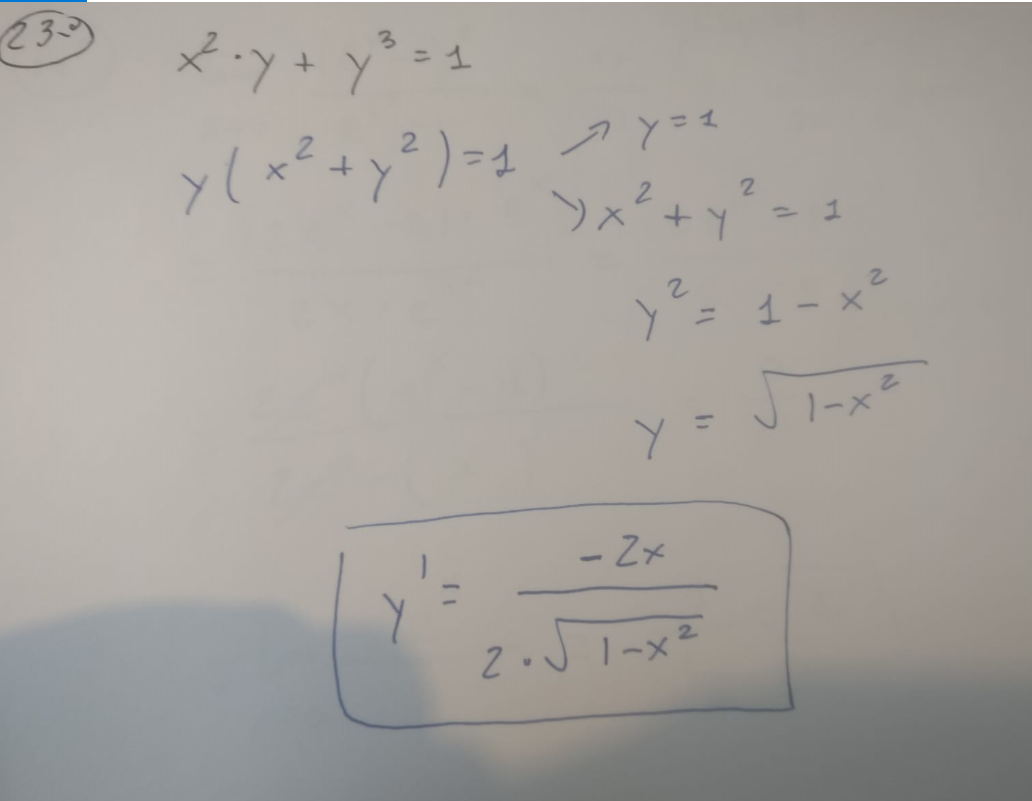 23-
x² · y + y³ = 1
y( x² + y² ) = 1 ↗ y = 1
↘ x² + y² = 1
y² = 1 - x²
y = √(1-x²)
y' = -2x / 2·√(1-x²)